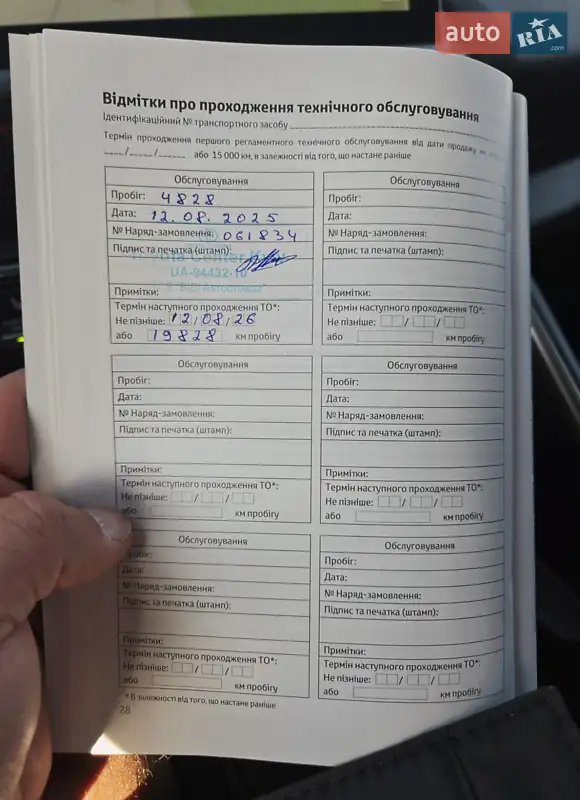 auto RIA.com
Відмітки про проходження технічного обслуговування
Ідентифікаційний № транспортного засобу
Термін проходження першого регламентного технічного обслуговування від дати продажу
___/___/___ або 15 000 км, в залежності від того, що настане раніше
Обслуговування
Пробіг: 4828
Дата: 12.08.2025
№ Наряд-замовлення: 061834
Підпис та печатка (штамп):
Toyota Center
UA-94432-10
Примітки:
Термін наступного проходження ТО*:
Не пізніше: 12/08/26
або 19828 км пробігу
Обслуговування
Пробіг:
Дата:
№ Наряд-замовлення:
Підпис та печатка (штамп):
Примітки:
Термін наступного проходження ТО*:
Не пізніше: / /
або км пробігу
Обслуговування
Пробіг:
Дата:
№ Наряд-замовлення:
Підпис та печатка (штамп):
Примітки:
Термін наступного проходження ТО*:
Не пізніше: / /
або км пробігу
Обслуговування
Пробіг:
Дата:
№ Наряд-замовлення:
Підпис та печатка (штамп):
Примітки:
Термін наступного проходження ТО*:
Не пізніше: / /
або км пробігу
Обслуговування
Пробіг:
Дата:
№ Наряд-замовлення:
Підпис та печатка (штамп):
Примітки:
Термін наступного проходження ТО*:
Не пізніше: / /
або км пробігу
Обслуговування
Пробіг:
Дата:
№ Наряд-замовлення:
Підпис та печатка (штамп):
Примітки:
Термін наступного проходження ТО*:
Не пізніше: / /
або км пробігу
* В залежності від того, що настане раніше
28